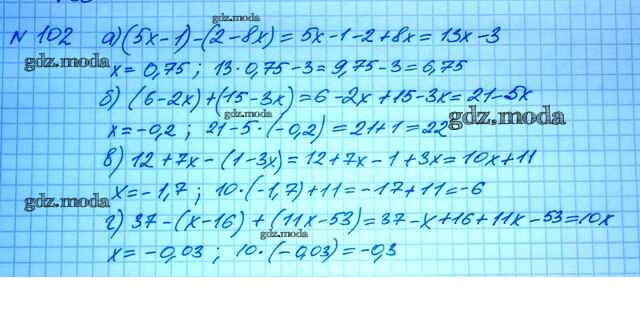 gdz.moda
N 102 а) (5x-1)-(2-8x) = 5x-1-2+8x = 13x-3
gdz.moda
x = 0,75 ; 13·0,75-3 = 9,75-3 = 6,75
б) (6-2x)+(15-3x) = 6-2x+15-3x = 21-5x
gdz.moda
x = -0,2 ; 21-5·(-0,2) = 21+1 = 22
gdz.moda
в) 12+7x-(1-3x) = 12+7x-1+3x = 10x+11
x = -1,7 ; 10·(-1,7)+11 = -17+11 = -6
gdz.moda
г) 37-(x-16)+(11x-53) = 37-x+16+11x-53 = 10x
gdz.moda
x = -0,03 ; 10·(-0,03) = -0,3